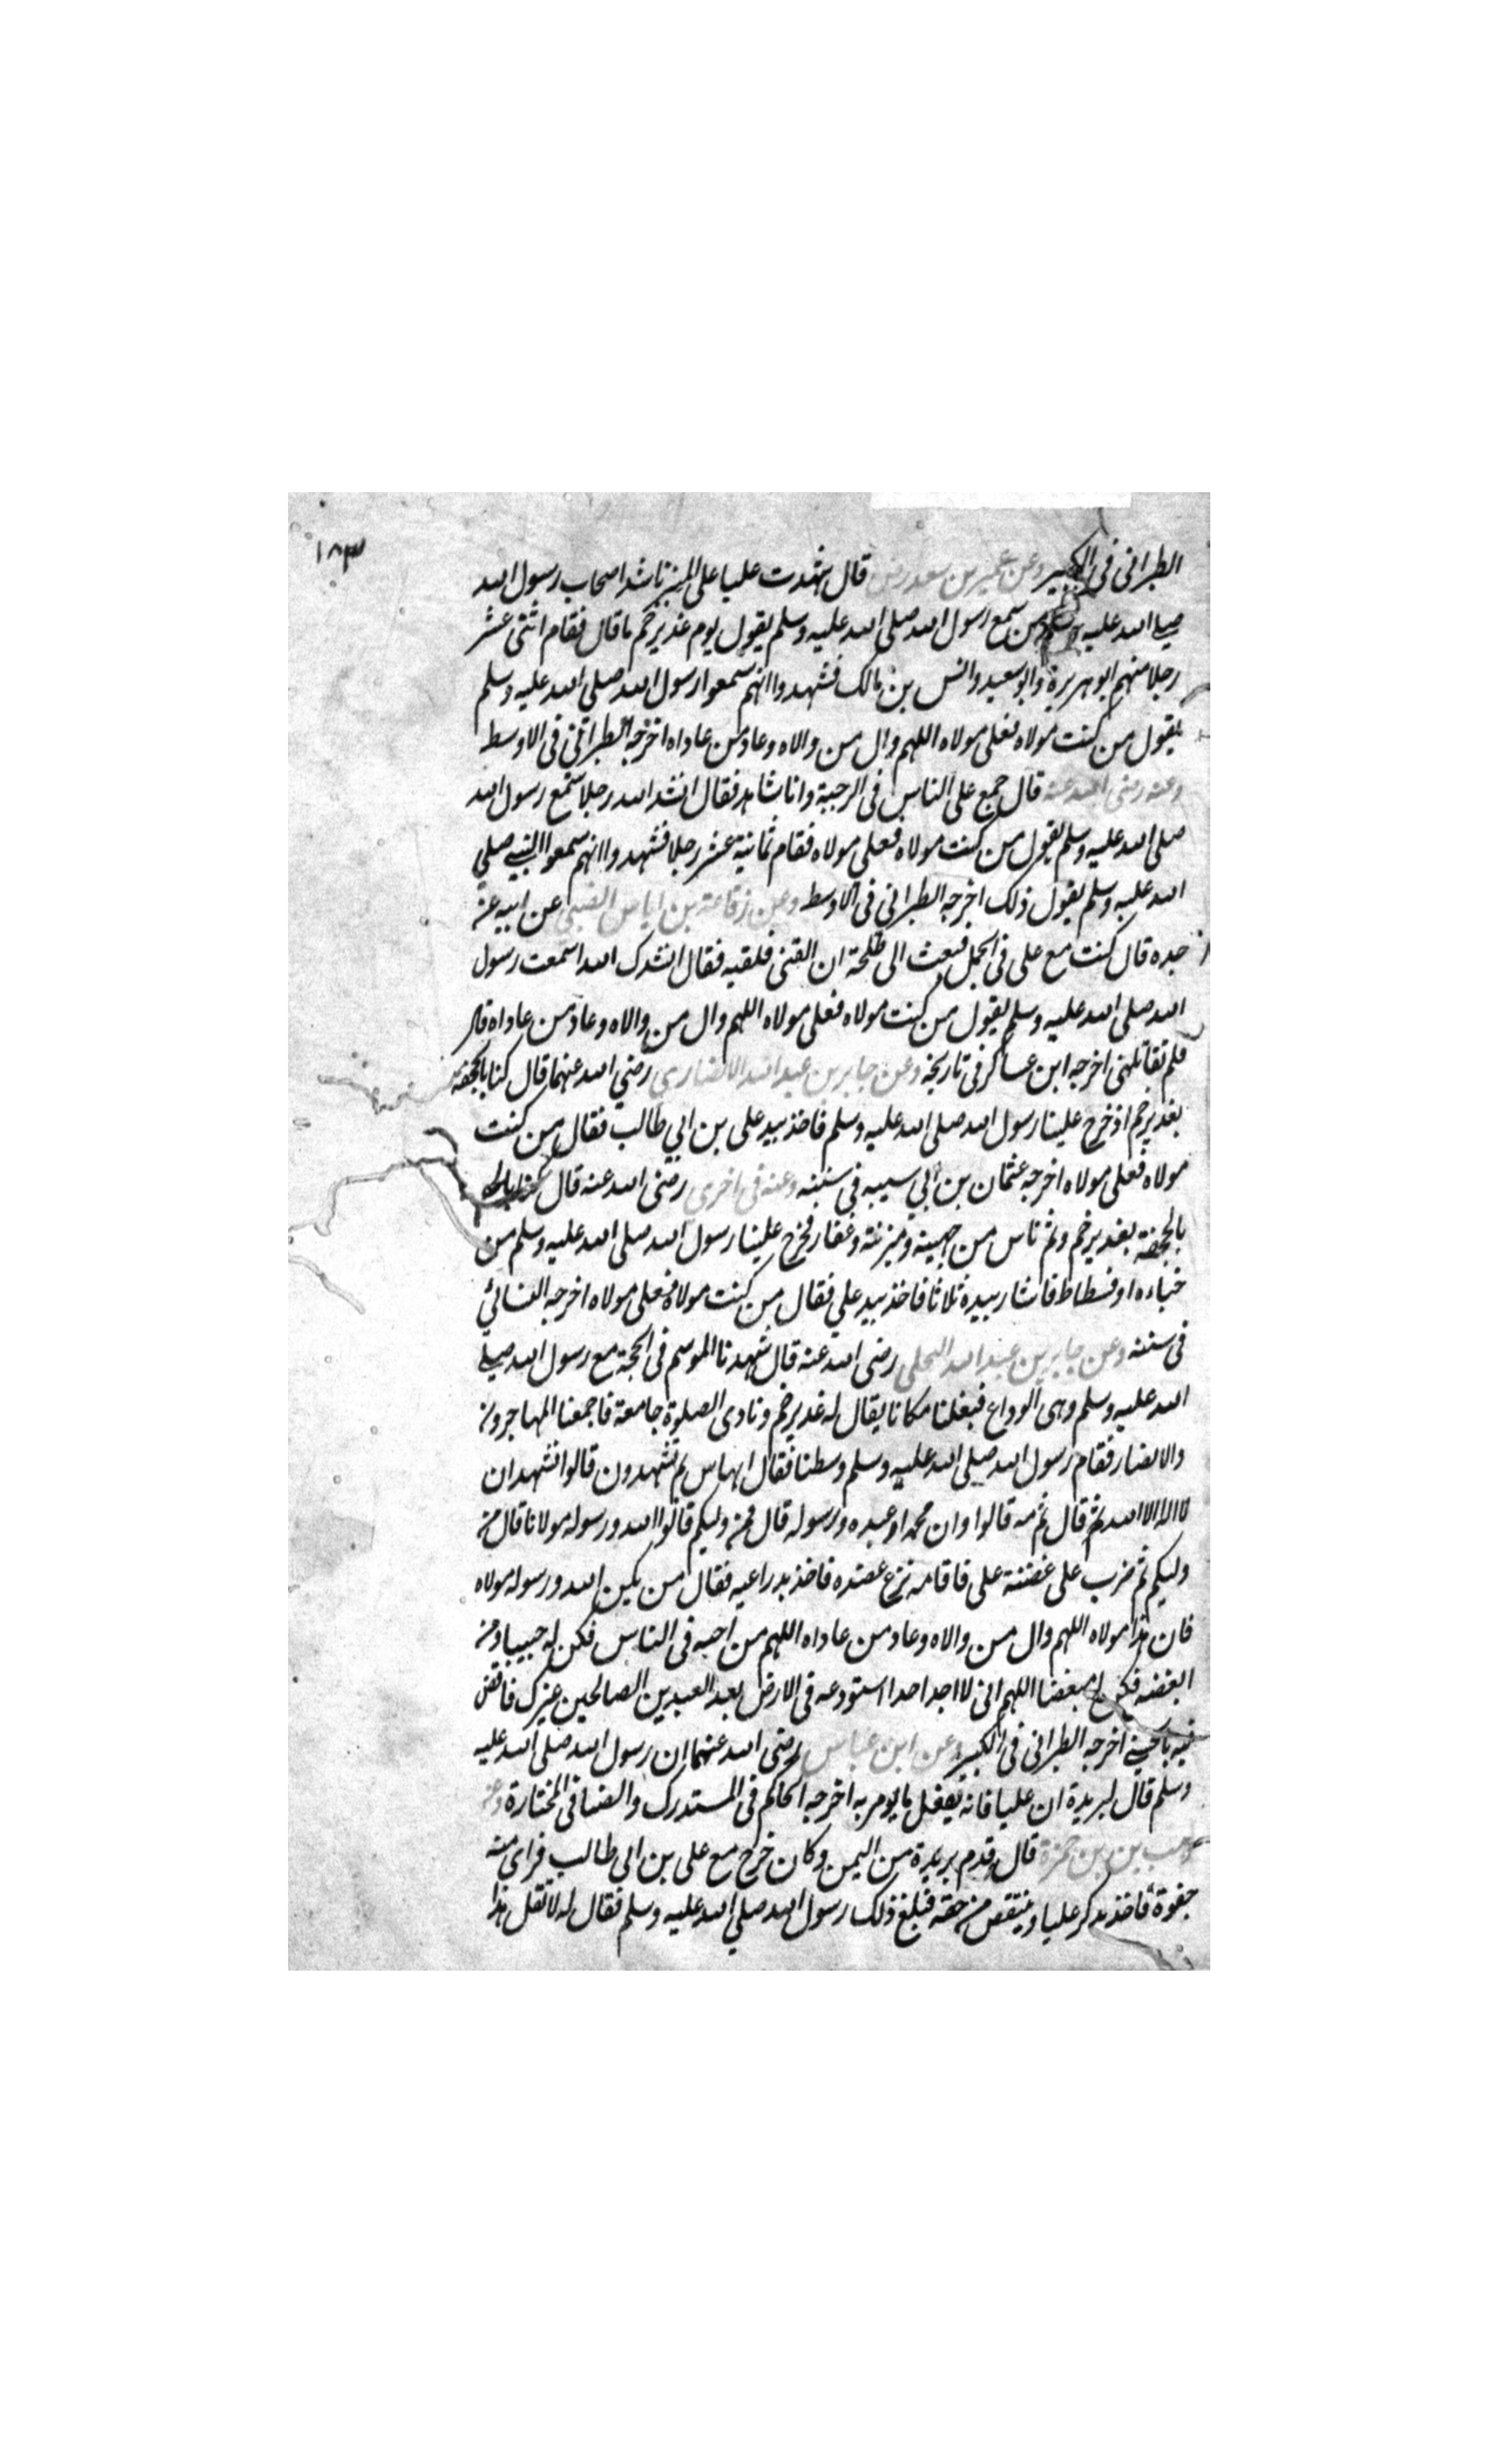 ١٨٣
الطبرانى فى الكبير وعن عمير بن سعد رض قال شهدت عليا على المنبر ناشد اصحاب رسول الله
صلى الله عليه وسلم من سمع رسول الله صلى الله عليه وسلم يقول يوم غدير خم ما قال فقام اثنى عشر
رجلا منهم ابو هريرة وابو سعيد وانس بن مالك فشهدوا انهم سمعوا رسول الله صلى الله عليه وسلم
يقول من كنت مولاه فعلى مولاه اللهم وال من والاه وعاد من عاداه اخرجه الطبرانى فى الاوسط
وعنه رضى الله عنه قال جمع على الناس فى الرحبة وانا شاهد فقال انشد الله رجلا سمع رسول الله
صلى الله عليه وسلم يقول من كنت مولاه فعلى مولاه فقام ثمانية عشر رجلا فشهدوا انهم سمعوا النبى صلى
الله عليه وسلم يقول ذلك اخرجه الطبرانى فى الاوسط وعن رفاعة بن اياس الضبى عن ابيه عن
جده قال كنت مع على فى الجمل فبعث الى طلحة ان القنى فلقيه فقال انشدك الله اسمعت رسول
الله صلى الله عليه وسلم يقول من كنت مولاه فعلى مولاه اللهم وال من والاه وعاد من عاداه قال
فلم تقاتلنى اخرجه ابن عساكر فى تاريخه وعن جابر بن عبد الله الانصارى رضي الله عنهما قال كنا بالجحفة
بغدير خم اذ خرج علينا رسول الله صلى الله عليه وسلم فاخذ بيد على بن ابي طالب فقال من كنت
مولاه فعلى مولاه اخرجه عثمان بن ابي سيبه فى سننه وعنه فى اخرى رضى الله عنه قال
بالجحفة بغدير خم وثم ناس من جهينة ومزينة وغفار فخرج علينا رسول الله صلى الله عليه وسلم من
خباءه او فسطاط فاشار بيده ثلاثا فاخذ بيد علي فقال من كنت مولاه فعلى مولاه اخرجه النسائي
فى سننه وعن جابر بن عبد الله البجلى رضى الله عنه قال شهدنا الموسم فى الحجة مع رسول الله صلى
الله عليه وسلم وهى الوداع فبلغنا مكانا يقال له غدير خم ونادى الصلوة جامعة فاجمعنا المهاجرون
والانصار فقام رسول الله صلى الله عليه وسلم وسطنا فقال ايها س بم تشهدون قالوا نشهد ان
لا اله الا الله ثم قال ثم مه قالوا وان محمدا عبده ورسوله قال فمن وليكم قالوا الله ورسوله مولانا قال من
وليكم ثم ضرب على عضدة على فاقامه نزع عضده فاخذ بدراعيه فقال من يكن الله ورسوله مولاه
فان هذا مولاه اللهم وال من والاه وعاد من عاداه اللهم من احبه فى الناس فكن له حبيبا ومن
ابغضه فكن له مبغضا اللهم انى لا اجد احدا استودعه فى الارض بعد العبدين الصالحين غيرك فاقض
فيه بالحسنى اخرجه الطبرانى فى الكبير وعن ابن عباس رضى الله عنهما ان رسول الله صلى الله عليه
وسلم قال لبريدة ان عليا فانه يفعل ما يومر به اخرجه الحاكم فى المستدرك والضيا فى المختارة وعن
وهب بن حمزة قال قدم بريدة من اليمن وكان خرج مع على بن ابى طالب فراى منه
جفوة فاخذ يذكر عليا وينتقص من حقه فبلغ ذلك رسول الله صلى الله عليه وسلم فقال له لا تقل هذا